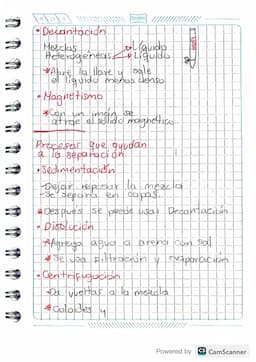 •Decantación
Mezclas Líquido
Heterogéneas Líquido
*Abre la llave y sale
el líquido menos denso
•Magnetismo
*Con un imán se
atrae el sólido magnético
Procesos que ayudan
a la separación
•Sedimentación
-Dejar reposar la mezcla
-Se separa en capas
*Después se puede usar Decantación
•Disolución
*Agrega agua a arena con sal
*Se usa Filtración y evaporación
•Centrifugación
-Da vueltas a la mezcla
*Coloides y
Powered by CS CamScanner